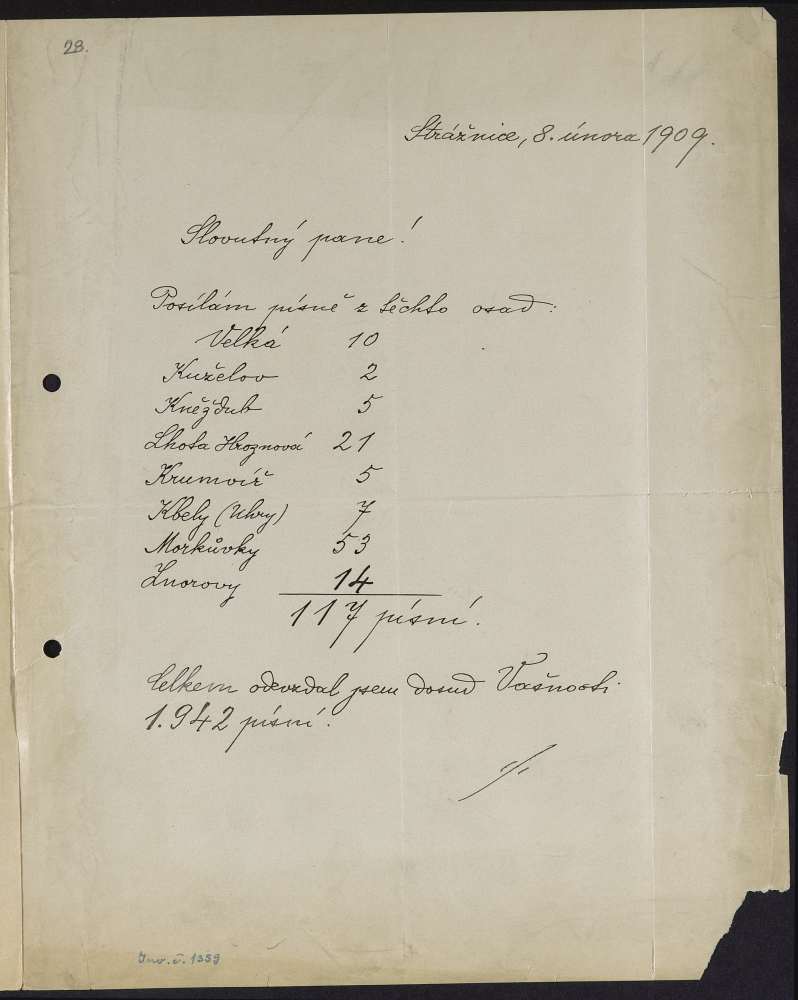 28.
Strážnice, 8. února 1909.
Slovutný pane!
Posílám písně z těchto osad:
Velká 10
Kuželov 2
Kněždub 5
Lhota Hroznová 21
Krumvíř 5
Kbely (Uhry) 7
Morkůvky 53
Znorovy 14
117 písní.
Celkem odevzdal jsem dosud Vašnosti
1.942 písní.
Inv. č. 1359